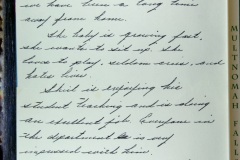 we have been a long time
away from home.
The baby is growing fast,
she wants to set up. She
loves to play, seldom cries, and
hates liver.
is enjoying his
student teaching and is doing
an excellent job. Everyone in
the department is very
impressed with him.
MULTNOMAH FALLS